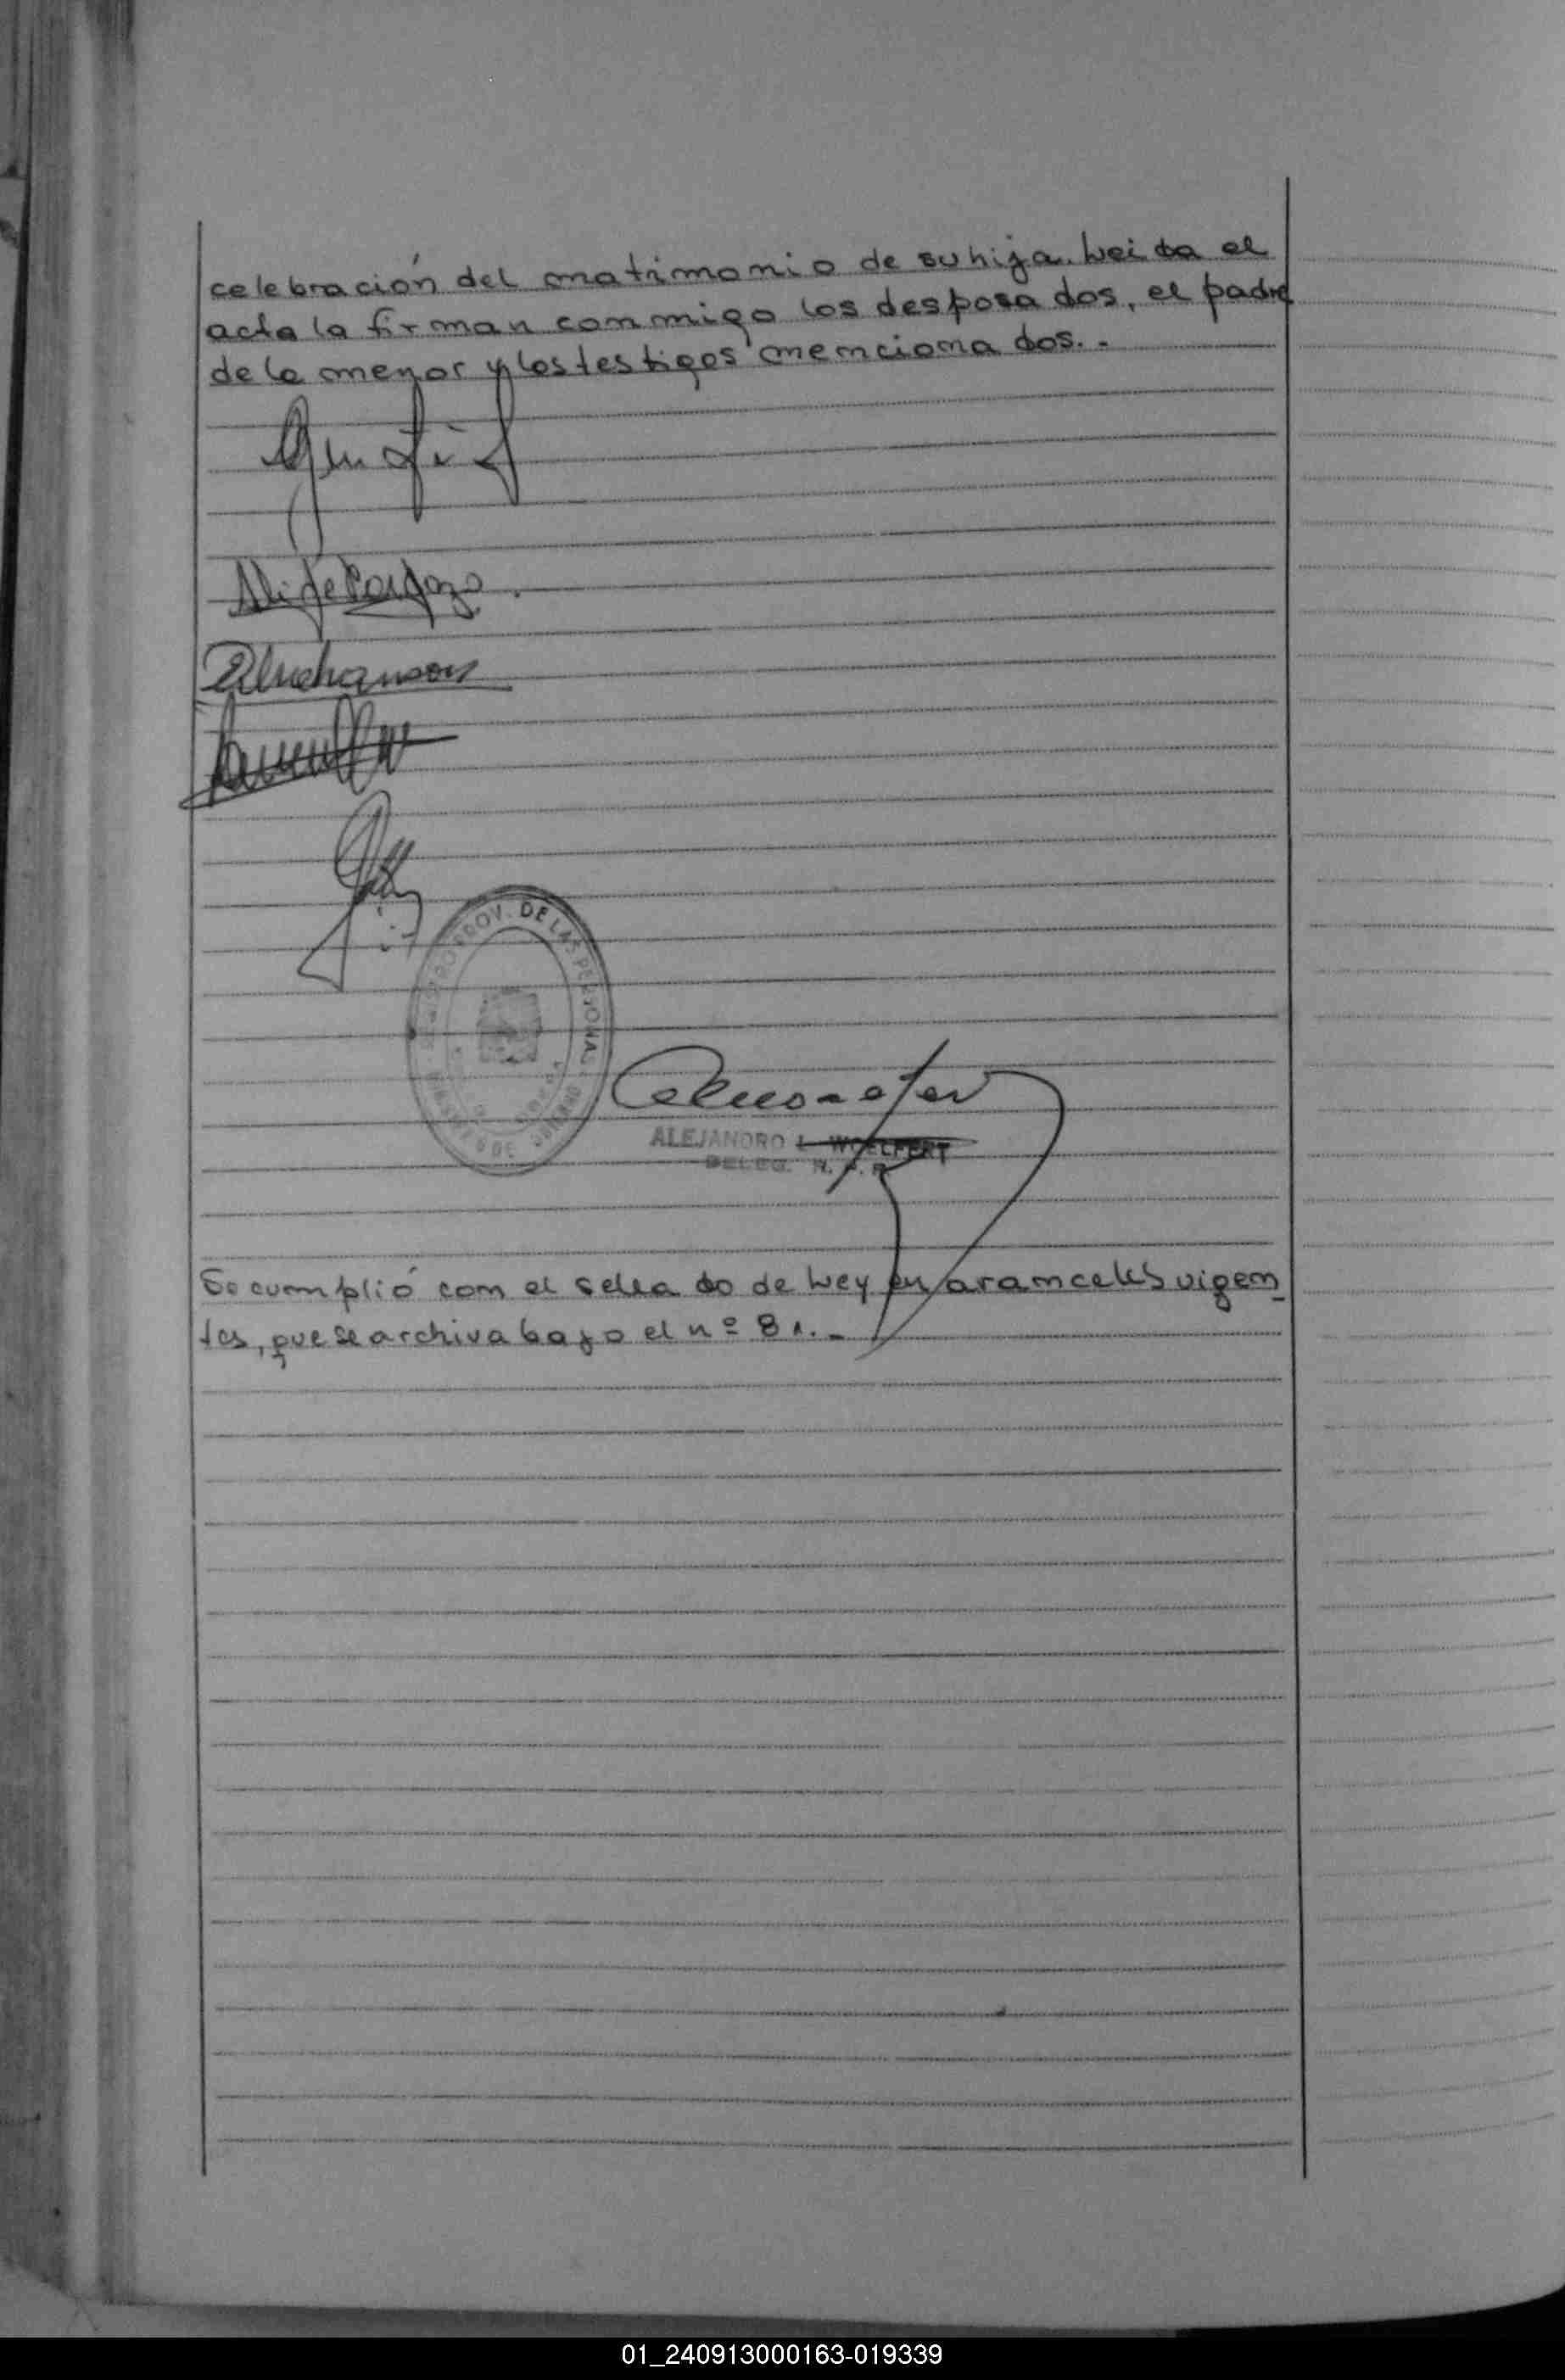 celebración del matrimonio de su hija. Leida el
acta la firman conmigo los desposados, el padre
de la menor y los testigos mencionados. -
PROV. DE LAS PERSONAS
ALEJANDRO L. WOELFERT
DELEG. R. P. P.
Se cumplió con el sellado de Ley en aranceles vigen
tes, que se archiva bajo el nº 81. -
01_240913000163-019339